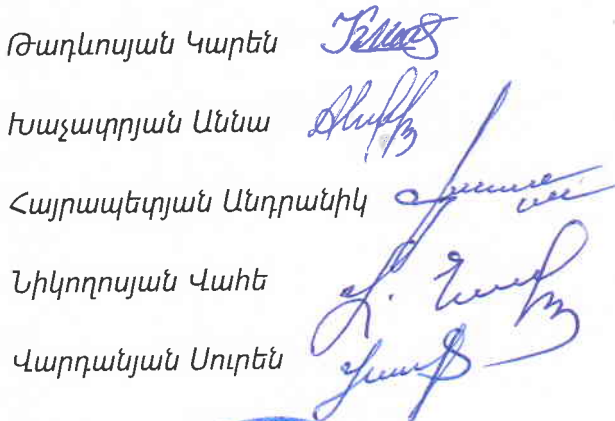 Թադևոսյան Կարեն
Խաչատրյան Աննա
Հայրապետյան Անդրանիկ
Նիկողոսյան Վահե
Վարդանյան Սուրեն